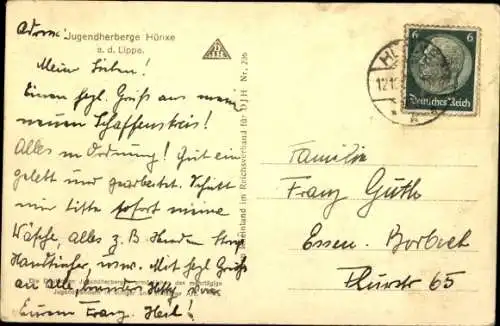 Adresse: Jugendherberge Hünxe
a. d. Lippe.
Meine Lieben!
Einen herzl. Gruß aus meinem
neuen Schaffenskreis!
Alles in Ordnung! Gut ein-
gelebt und gearbeitet. Schickt
mir bitte sofort meine
Wäsche, alles z. B. Hemden
Handtücher, usw. Mit herzl. Gruß
an alle
Eurem Franz. Heil!
Jugendherberge
Rheinland im Reichsverband für DJH Nr. 236
6 6
Deutsches Reich
HÜ
12.12.
Familie
Franz Guth
Essen-Borbeck
Flurstr 65